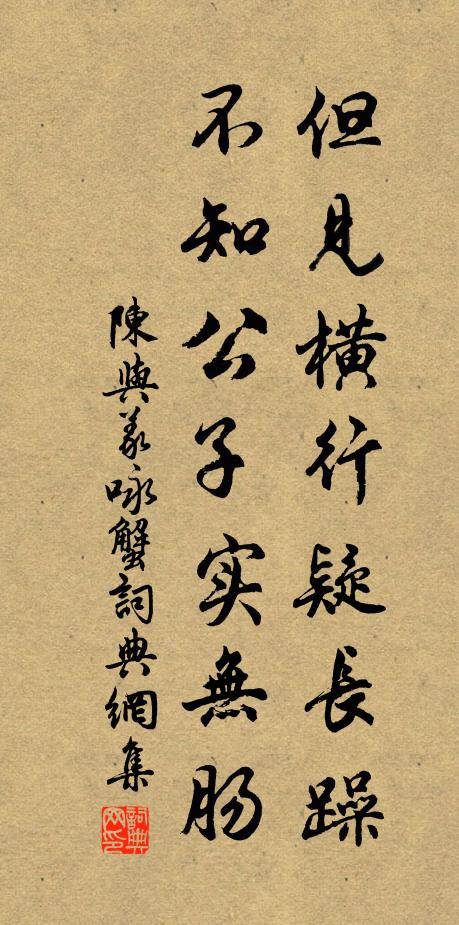 但見橫行疑長躁
不知公子实無肠
陳與義咏蟹詞典網集
詞典
网印